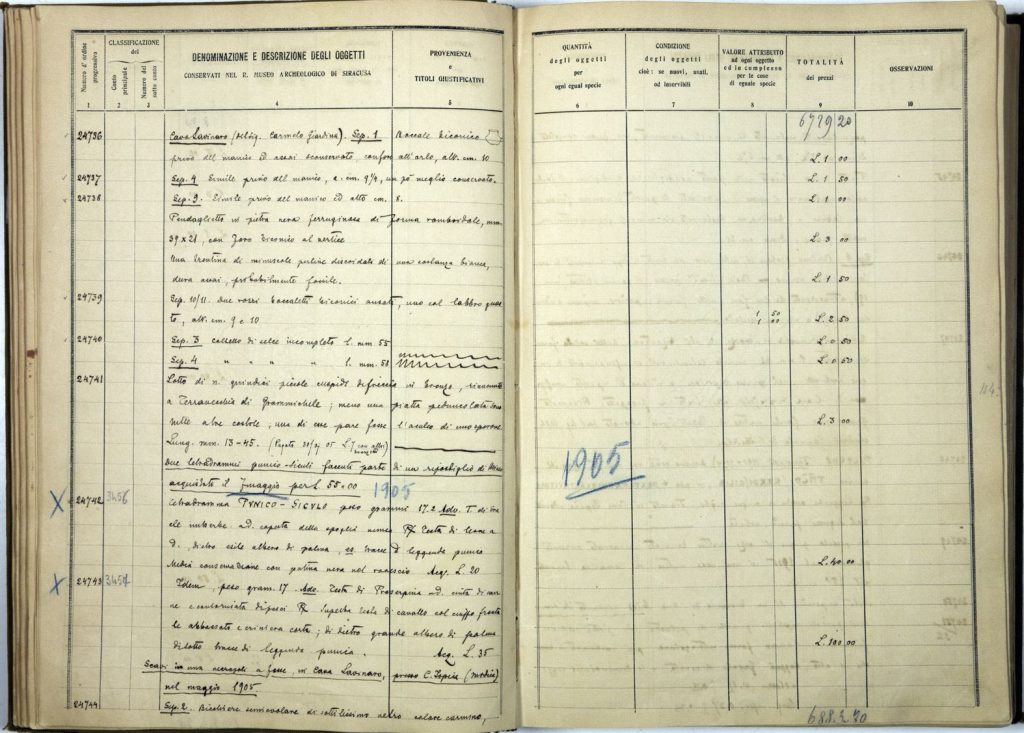 Numero d'ordine progressivo
CLASSIFICAZIONE del
Conto principale
Numero del sotto conto
DENOMINAZIONE E DESCRIZIONE DEGLI OGGETTI
CONSERVATI NEL R. MUSEO ARCHEOLOGICO DI SIRACUSA
PROVENIENZA
e
TITOLI GIUSTIFICATIVI
1 2 3 4 5
24736 Cava Lavinaro (  Carmelo Giardina). Sep. 1 Boccale biconico
privo del manico ed assai sconservato, all'orlo, alt. cm. 10
24737 Sep. 4 Simile privo del manico, a. cm. 9 1/4, un po' meglio conservato.
24738 Sep. 9. Simile privo del manico ed alto cm. 8.
Pendaglietto in pietra nera ferruginosa di forma romboidale, mm.
39 x 21, con foro biconico al vertice
Una trentina di minuscole perline discoidali di una sostanza bianca,
dura assai, probabilmente fossile.
24739 Sep. 10/11. due rozzi boccaletti biconici ansati, uno col labbro guas
to, alt. cm. 9 e 10
24740 Sep. 3 coltello di selce incompleto l. mm 55
Sep. 4 " " " " l. mm. 58
24741 Lotto di n. quindici piccole cuspidi di freccia in bronzo, rinvenute
a Terravecchia di Grammichele; meno una piatta peduncolata sono
tutte a tre costole; una di esse pare fosse l'aculeo di uno sperone.
Lung. mm. 13-45. (Pagato 05 L. 7 con altri
due tetradrammi punico-siculi facenti parte di un ripostiglio di
acquistati il 7 maggio per L. 55.00 1905
24742 3456 Tetradramma PUNICO-SICULO peso grammi 17.2 Ado. T. di
cole imberbe ad. coperta della spoglia nemea R/ Testa di leone a
d., dietro esile albero di palma, es. tracce di leggenda punica
Media conservazione con patina nera nel rovescio Acq. L. 20
24743 3457 Idem, peso gram. 17. Ado. Testa di Proserpina ad. cinta di
ne e contorniata di pesci R/ Superba testa di cavallo col ciuffo fronta
le abbassato e criniera corta; di dietro grande albero di palma
di sotto tracce di leggenda punica. Acq. L. 35
Scavi in una necropoli a fosse, in Cava Lavinaro, presso C. Ispica (Modica)
nel maggio 1905
24744 Sep. 2. Bicchiere semiovolare di sottilissimo vetro colore carmino,
QUANTITÀ
degli oggetti
per
ogni egual specie
CONDIZIONE
degli oggetti
cioè: se nuovi, usati,
od inservibili
VALORE ATTRIBUITO
ad ogni oggetto
ed in complesso
per le cose
di eguale specie
TOTALITÀ
dei prezzi
OSSERVAZIONI
6 7 8 9 10
6729 20
L. 1 00
L. 1 50
L. 1 00
L. 3 00
L. 1 50
1 50
1 00 L. 2 50
L. 0 50
L. 0 50
L. 3 00
1905
L. 40 00
L. 100 00